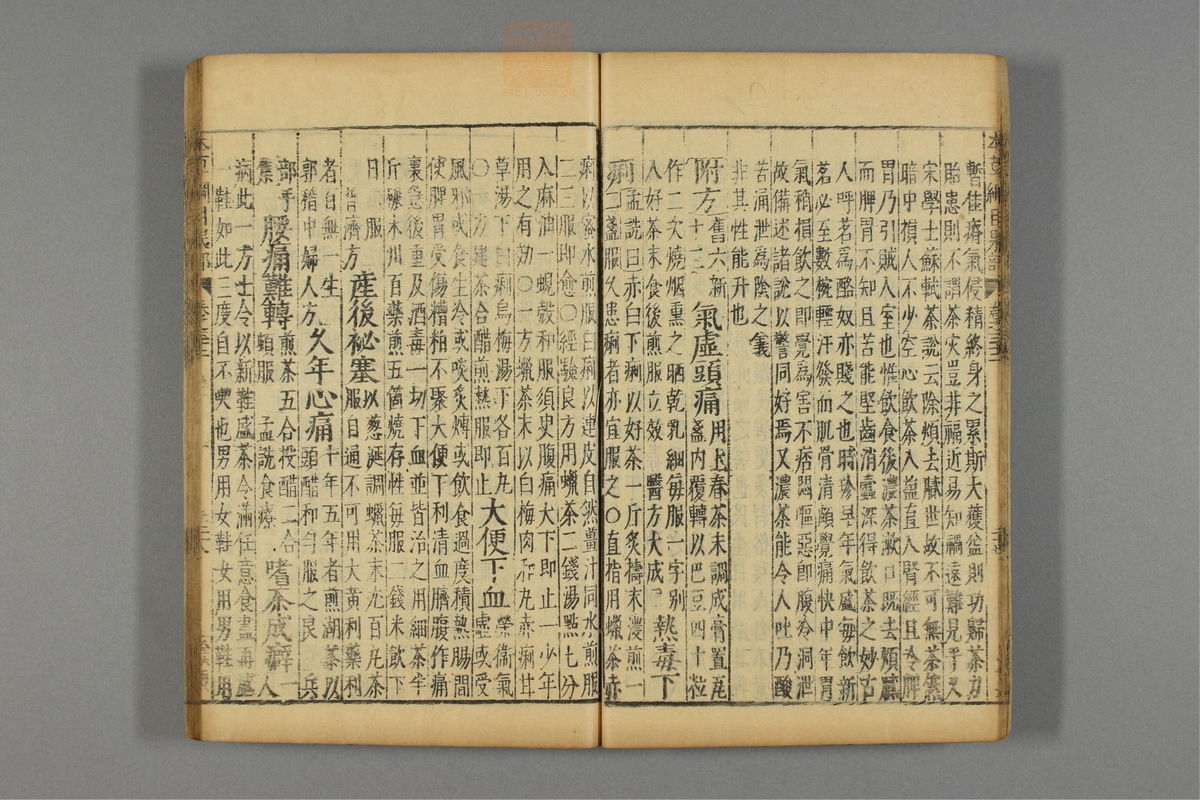 暫佳瘠氣侵精終身之累斯大獲益則功歸茶力
貽患則不謂茶災豈非福近易知禍遠難見乎又
宋學士蘇軾茶說云除煩去膩世故不可無茶然
暗中損人不少空心飲茶入鹽直入腎經且冷脾
胃乃引賊入室也惟飲食後濃茶漱口既去煩膩
而脾胃不知且苦能堅齒消蠹深得飲茶之妙古
人呼茗爲酪奴亦賤之也時珍早年氣盛每飲新
茗必至數椀輕汗發而肌骨清頗覺痛快中年胃
氣稍損飲之即覺爲害不痞悶嘔惡即腹冷洞泄
故備述諸說以警同好焉又濃茶能令人吐乃酸
苦涌泄爲陰之義
非其性能升也
附方舊六新十三 氣虛頭痛用上春茶末調成膏置瓦盞內覆轉以巴豆四十粒
作二次燒烟熏之晒乾乳細每服一字別
入好茶末食後煎服立效 醫方大成 熱毒下
痢孟詵曰赤白下痢以好茶一斤炙擣末濃煎一
二盞服久患痢者亦宜服之○直指用蠟茶赤
痢以蜜水煎服白痢以連皮自然薑汁同水煎服
二三服即愈○經驗良方用蠟茶二錢湯點七分
入麻油一蜆殼和服須臾腹痛大下即止一少年
用之有効○一方蠟茶末以白梅肉和丸赤痢甘
草湯下白痢烏梅湯下各百丸
○一方建茶合醋煎熱服即止 大便下血榮衛氣虛或受
風邪或食生冷或啖炙煿或飲食過度積熱腸間
使脾胃受傷糟粕不聚大便下利清血臍腹作痛
裏急後重及酒毒一切下血並皆治之用細茶半
斤碾末川百藥煎五箇燒存性每服二錢米飲下
日服 普濟方 產後秘塞以葱涎調蠟茶末丸百丸茶服自通不可用大黃利藥利
者百無一生
郭稽中婦人方 久年心痛十年五年者煎湖茶以頭醋和勻服之良 兵
部手集 腰痛難轉煎茶五合投醋二合頓服 孟詵食療 嗜茶成癖一人
病此一方士令以新鞋盛茶令滿任意食盡再盛
一鞋如此三度自不喫也男用女鞋女用男鞋用